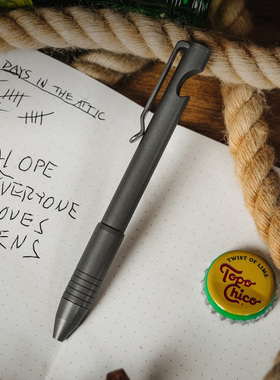 DAYS IN THE ATTIC
HOPE
EVERYONE
LOVES
PENS
TWIST OF LIME
Topo
Chico